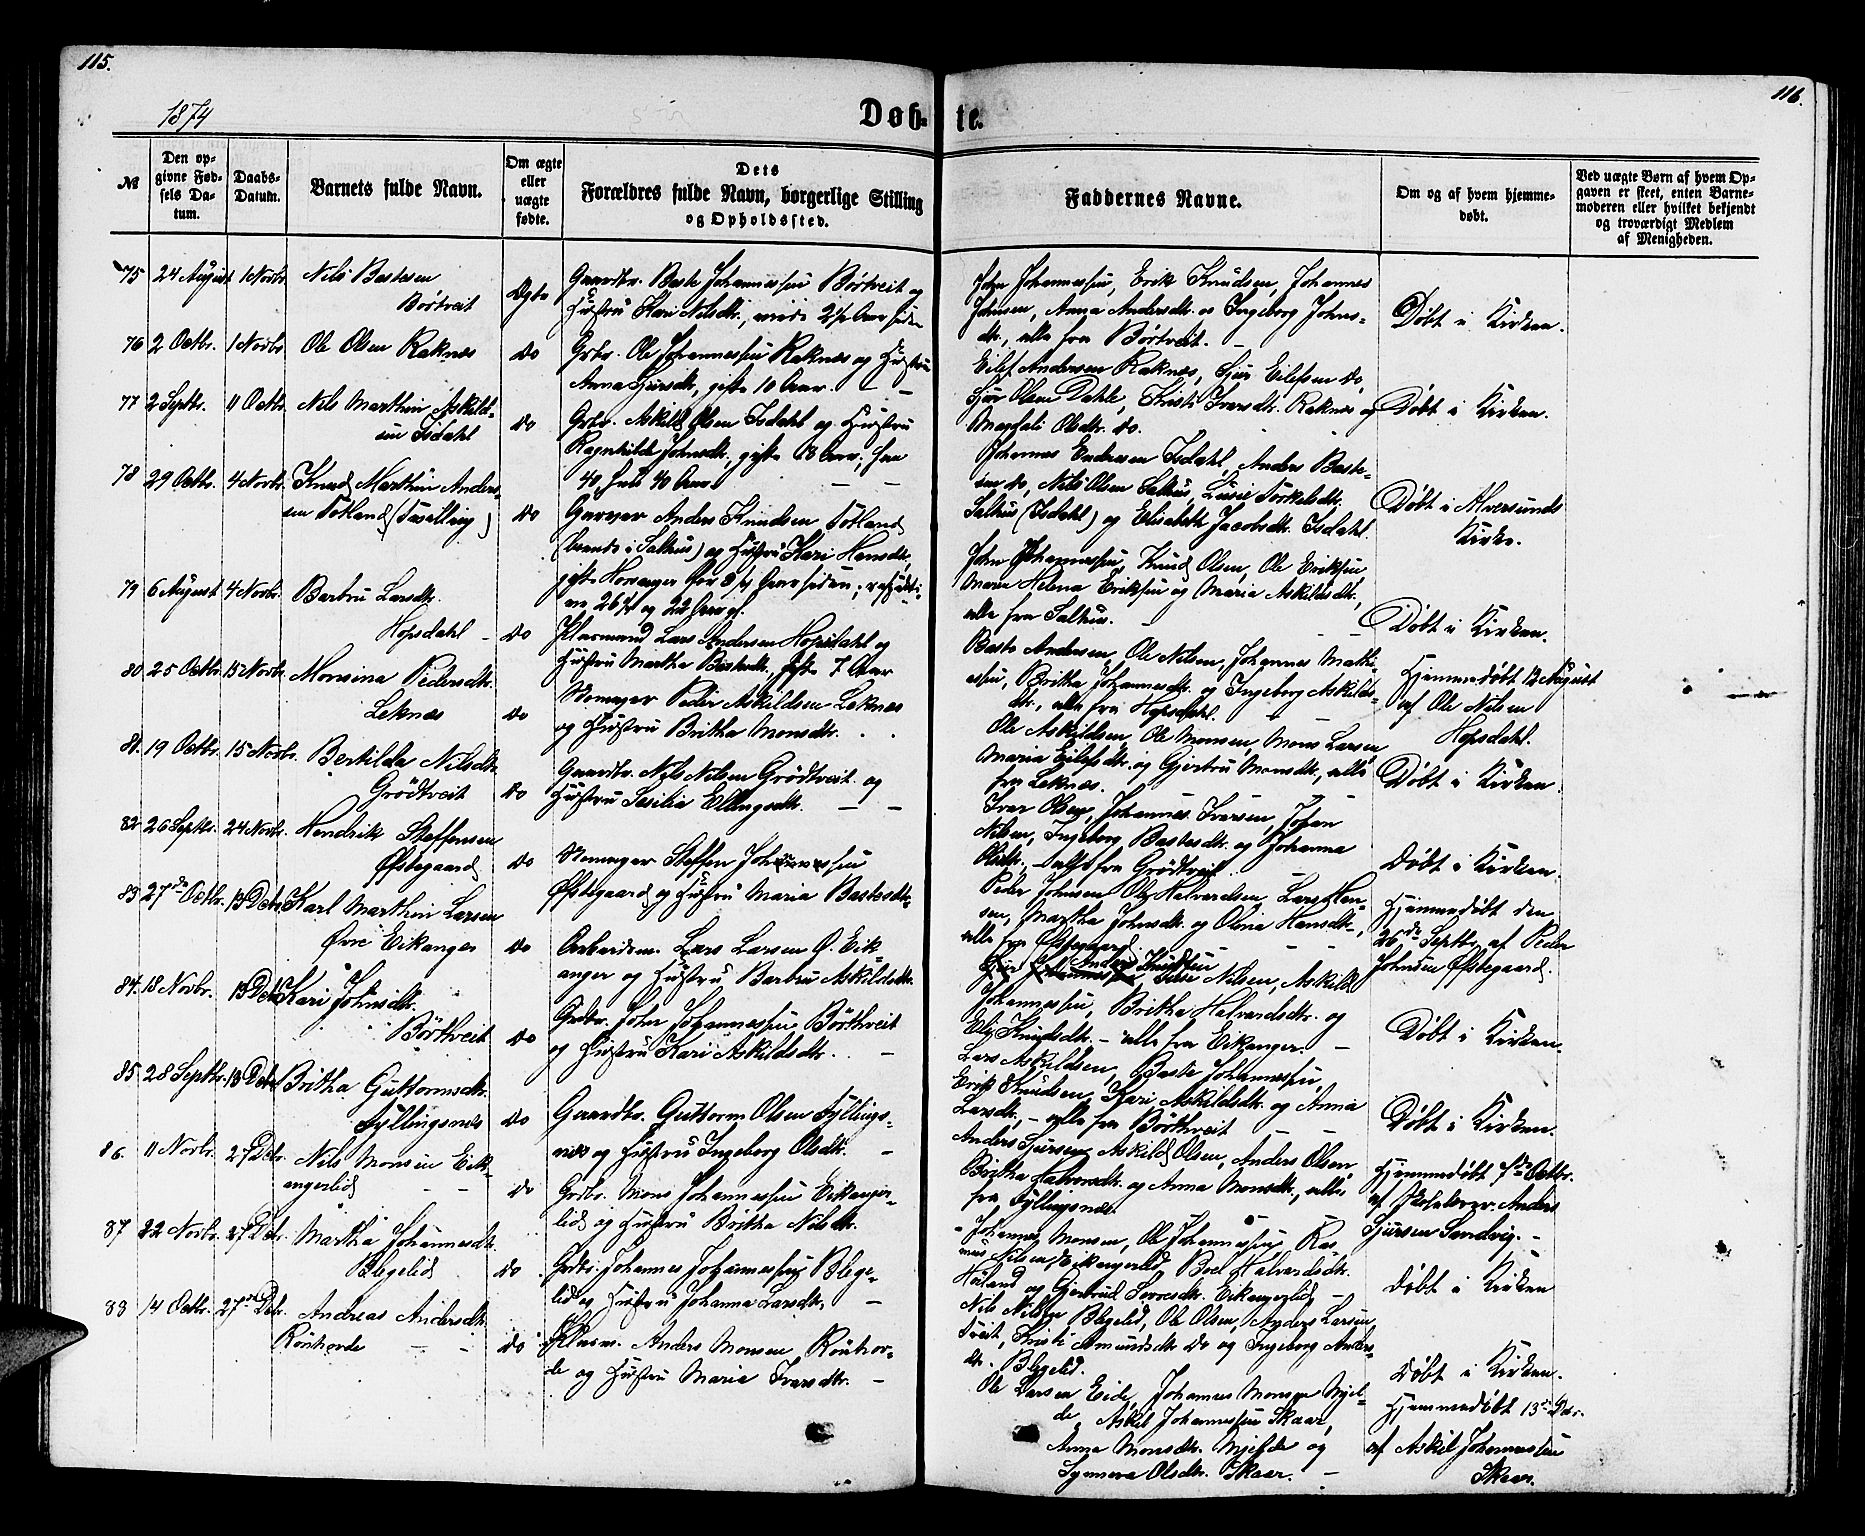 115.
116.
1874
Døb-te.
№
Den op-
givne Fød-
sels Da-
tum.
Daabs-
Datum.
Barnets fulde Navn.
Om ægte
eller
uægte
fødte.
Dets
Forældres fulde Navn, borgerlige Stilling
og Opholdssted.
Faddernes Navne.
Om og af hvem hjemme-
døbt.
Ved uægte Børn af hvem Op-
gaven er skeet, enten Barne-
moderen eller hvilket bekjendt
og troværdigt Medlem
af Menigheden.
75 24 August 1 Novbr. Nils Bastesen
Börtveit
Ægte
Gaardbr. Baste Johannessen Börtveit og
Hustru Kari Nilsdtr.,
John Johannessen, Erik Knudsen, Johannes
Johnsen, Anna Andersdtr. og Ingeborg Johns-
dtr., alle fra Börtveit. –
Döbt i Kirken.
76 2 Octbr. 1 Novbr. Ole Olsen Raknes
do
Grbr. Ole Johannessen Raknes og Hustru
Anna Sjursdtr., gifte 10 Aar. –
Eilef Andersen Raknes, Sjur Eilefsen do,
Sjur Olsen Dahle, Kristi Ivarsdtr. Raknes og
Magfali Olsdtr. do.
Döbt i Kirken.
77 2 Septbr. 11 Octbr. Nils Marthin Askild-
sen Isdahl
do
Grbr. Askild Olsen Isdahl og Hustru
Ragnhilde Johnsdtr., gifte 13 Aar, han
40, hun 40 Aar. – –
Johannes Endresen Isdahl, Anders Baste-
sen do, Nils Olsen Salhus, Lusie Torkelsdtr.
Salhus (Isdahl) og Elisabeth Jacobsdtr. Isdahl.
Döbt i Alversunds
Kirke.
78 29 Octbr. 4 Novbr. Knud Marthin Anders-
sen Totland (Tvilling)
do
Garver Anders Knudsen Totland
(boende i Salhus) og Hustru Kari Hansdtr.,
gifte Hosanger for 3/4 Aar siden;
26 1/2 og 22 Aar gl.
John Johannessen, Knud Olsen, Ole Eriksen,
Maren Helena Eriksen og Maria Askildsdtr.,
alle fra Salhus. –
Döbt i Kirken.
79 6 August 4 Novbr. Barbru Larsdtr.
Hopsdahl –
do
Plasmand Lars Andersen Hopsdahl og
Hustru Martha Bastesdtr., gifte 7 Aar
Baste Andersen, Ole Nilsen, Johannes Mathi-
essen, Britha Johannesdtr. og Ingeborg Askilds-
dtr., alle fra Hopsdahl. –
Hjemmedöbt 12 August
af Ole Nilsen
Hopsdahl.
80 25 Octbr. 15 Novbr. Monsina Pedersdtr.
Leknes
do
Peder Askildsen Leknes
og Hustru Britha Monsdtr.
Ole Askildsen, Ole Monsen, Mons Larsen,
Maria Eilefsdtr. og Gjertru Monsdtr., alle
fra Leknes.
Döbt i Kirken.
81. 19 Octbr. 15 Novbr. Bertilda Nilsdtr.
Grödtveit
do
Gaardbr. Nils Nilsen Grödtveit og
Hustru Sesilia Ellingsdtr. – –
Ivar Olsen, Johannes Ivarsen, Johan
Nilsen, Ingeborg Bastesdtr. og Johanna
Olsdtr. – alle fra Grödtveit
Döbt i Kirken.
82 26 Septbr. 24 Novbr. Hendrik Steffensen
Östegaard
do
Steffen Johannessen
Östegaard og Hustru Maria Bastesdtr.
Peder Johnsen, Ole Halvardsen, Lars Han-
sen, Martha Johnsdtr. og Olina Hansdtr.,
alle fra Östegaard.
Hjemmedöbt den
26de Septbr. af Peder
Johnsen Östegaard.
83 27de Octbr. 13 Decbr. Karl Marthin Larsen
Övre Eikanger
do
Arbeidsm. Lars Larsen Ö. Eik-
anger og Hustru Barbru Askildsdtr.
Anders Knudsen
Nilsen, Askild
Johannessen, Britha Halvardsdtr. og
Eli Knudsdtr. – alle fra Eikanger. –
Döbt i Kirken.
84. 18 Novbr. 13 Decbr. Kari Johnsdtr.
Börthveit
do
Grbr. John Johannessen Börthveit
og Hustru Kari Askildsdtr. –
Lars Askildsen, Baste Johannessen,
Erik Knudsen, Kari Askildsdtr. og Anna
Larsdtr. – alle fra Börthveit – –
Döbt i Kirken.
85. 28 Septbr. 13 Decbr. Britha Guttormsdtr.
Fyllingsnes
do
Gaardbr. Guttorm Olsen Fyllings-
nes og Hustru Ingeborg Olsdtr. –
Anders Sjursen, Askild Olsen, Anders Olsen,
Britha Halvorsdtr. og Anna Monsdtr., alle
fra Fyllingsnes.
Hjemmedöbt 7de Octbr.
af Skolelærer Anders
Sjursen Sandvig. –
86. 11 Novbr. 27 Decbr. Nils Monsen Eik-
angerlid – –
do
Grbr. Mons Johannessen Eikanger-
lid og Hustru Britha Nilsdtr.
Johannes Monsen, Ole Johannessen, Ras-
mus Nilsen Eikangerlid, Boel Halvardsdtr.
Höiland og Gjertrud Eikangerlid –
Döbt i Kirken
87 22 Novbr. 27 Decbr. Martha Johannesdtr.
Blegelid
do
Grdbr. Johannes Johannessen Blege-
lid og Hustru Johanna Larsdtr. –
Nils Nilsen Blegelid, Ole Olsen, Anders Larsen
Tveit, Kristi Amundsdtr. do og Ingeborg Anders-
dtr. Blegelid.
Döbt i Kirken.
88 14 Octbr. 27de Decbr. Andreas Andersdtr.
Rönhovde – –
do
Plasm. Anders Monsen Rönhov-
de og Hustru Maria Ivarsdtr. –
Ole Larsen Eide, Johannes Monsen Mjel-
de, Askil Johannessen Skaar,
Anna Monsdtr. Mjelde og
Synneva Olsdtr. Skaar. –
Hjemmedöbt 13de Dec.
af Askil Johannessen
Skaar.